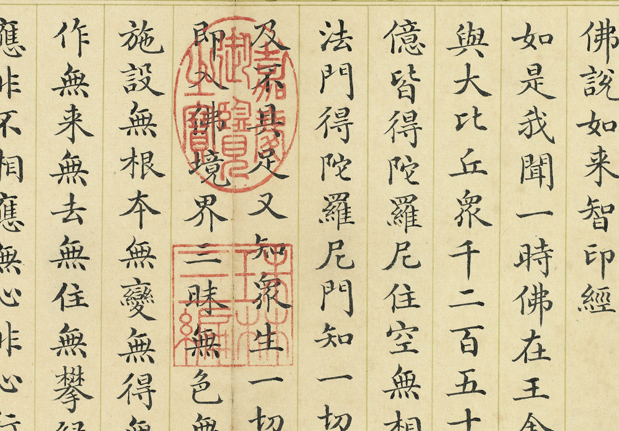 佛說如来智印經
如是我聞一時佛在王舍
與大比丘衆千二百五十
億皆得陀羅尼住空無相
法門得陀羅尼門知一切
及不具足又知衆生一切
即入佛境界三昧無色無
施設無根本無變無得無
作無来無去無住無攀緣
應非不相應無心非心行
嘉慶御覽之寶
珠林三編